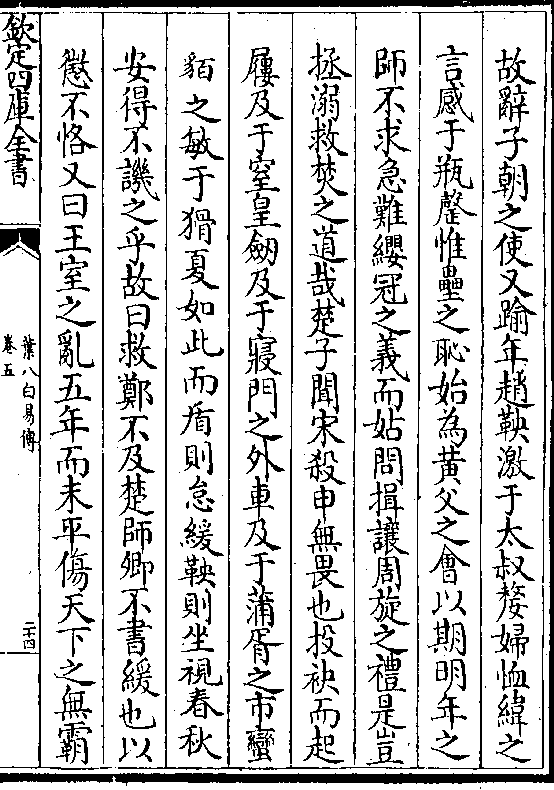 故辭子朝之使又踰年趙鞅激于太叔嫠婦恤緯之
言感于瓶罄惟罍之恥始為黃父之會以期明年之
師不求急難纓冠之義而姑問揖讓周旋之禮是豈
拯溺救焚之道哉楚子聞宋殺申無畏也投袂而起
屨及于窒皇劒及于寢門之外車及于蒲胥之市蠻
貊之敏于猾夏如此而盾則怠緩鞅則坐視春秋
安得不譏之乎故曰救鄭不及楚師卿不書緩也以
懲不恪又曰王室之亂五年而未平傷天下之無霸
欽定四庫全書
葉八白易傳
卷五
二十四